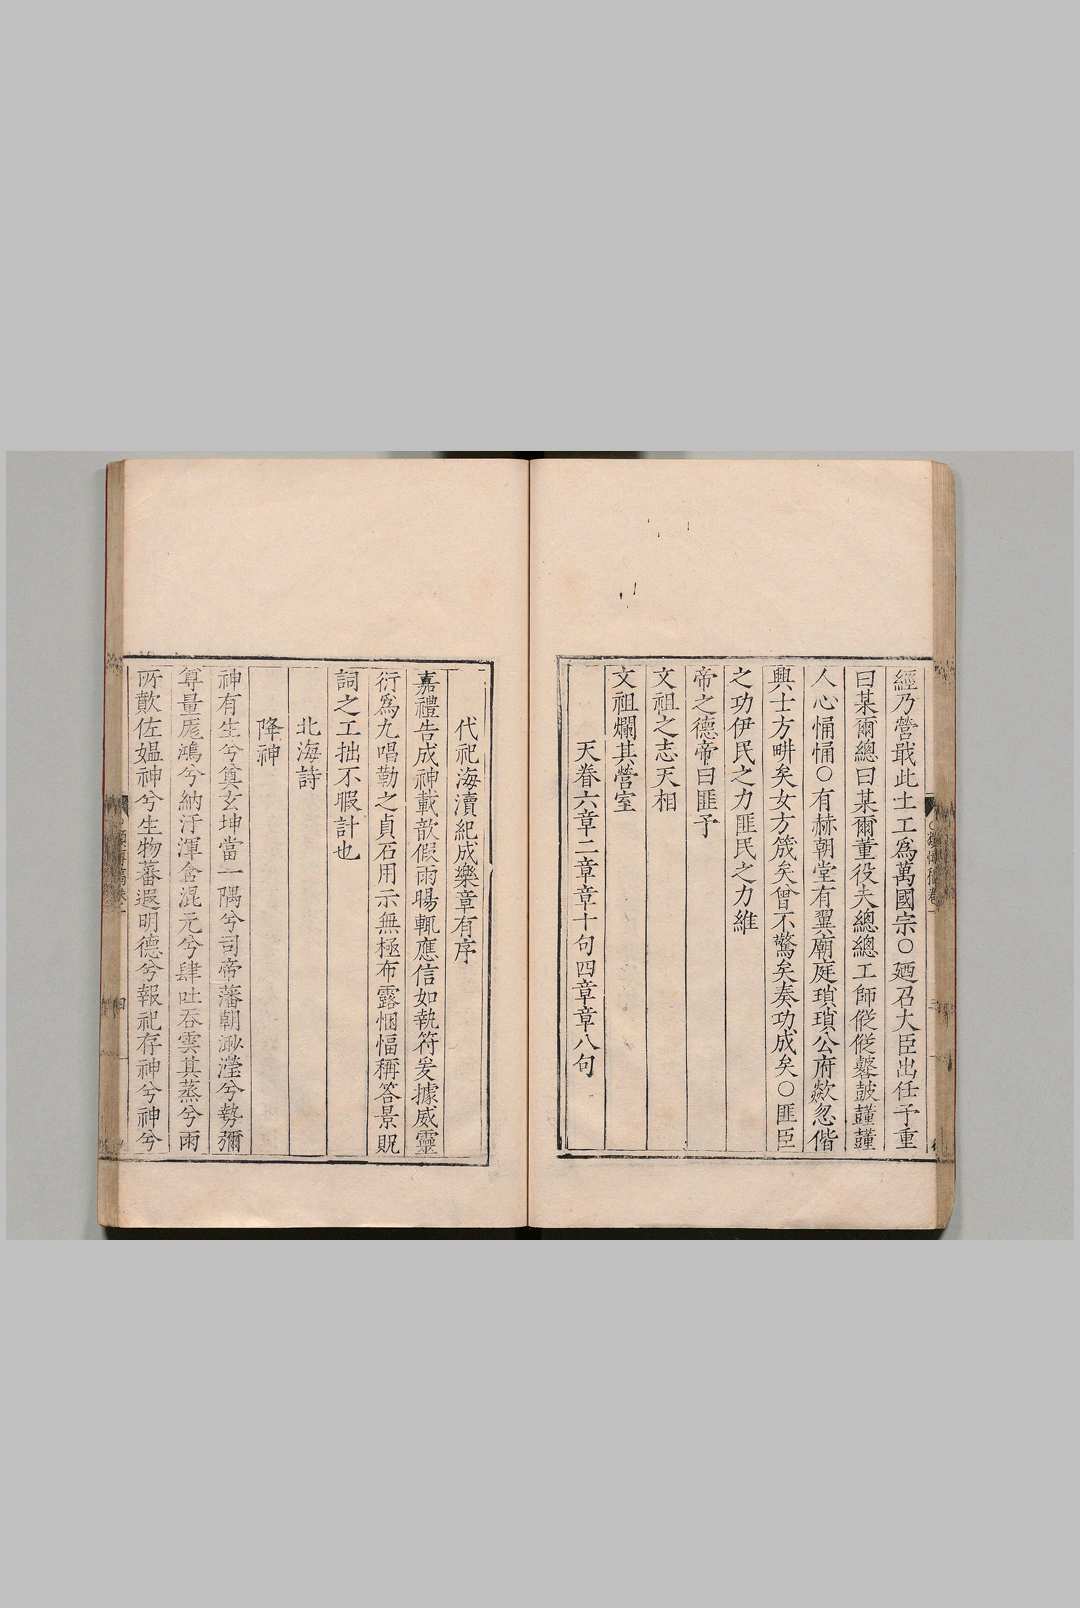 經乃營戢此土工爲萬國宗○廼召大臣出任予重
曰某爾總曰某爾董役夫總總工師傱傱鼛鼓䜴䜴
人心悀悀○有赫朝堂有翼廟庭瑣瑣公府歘忽偕
興士方畊矣女方箴矣曾不驚矣奏功成矣○匪臣
之功伊民之力匪民之力維
帝之德帝曰匪予
文祖之志天相
文祖爛其營室
天眷六章二章章十句四章章八句
代祀海瀆紀成樂章有序
嘉禮告成神載歆假雨暘輒應信如執符爰據威靈
衍爲九唱勒之貞石用示無極布露悃愊稱答景貺
詞之工拙不暇計也
北海詩
降神
神有生兮奠玄坤當一隅兮司帝藩朝渺瀅兮勢彌
尊量厖鴻兮納汙渾含混元兮肆吐吞雲其蒸兮雨
所歕佐媼神兮生物蕃遐明德兮報祀存神兮神兮
四